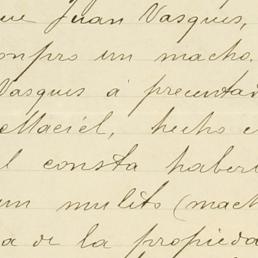 ue Juan Vasques,
onpro un macho.
Vasques á precentar
Maciel, hecho e
l consta haber
un mulito (mach
a de la propieda